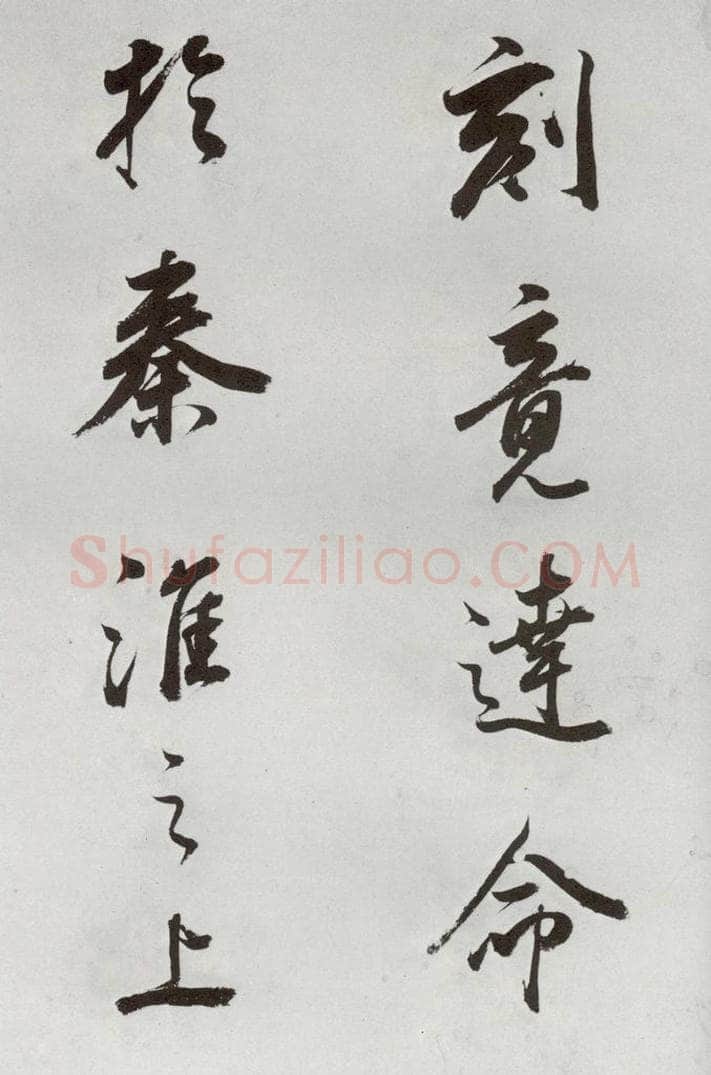 刻竟達命
於秦淮之上
Shufaziliao.COM